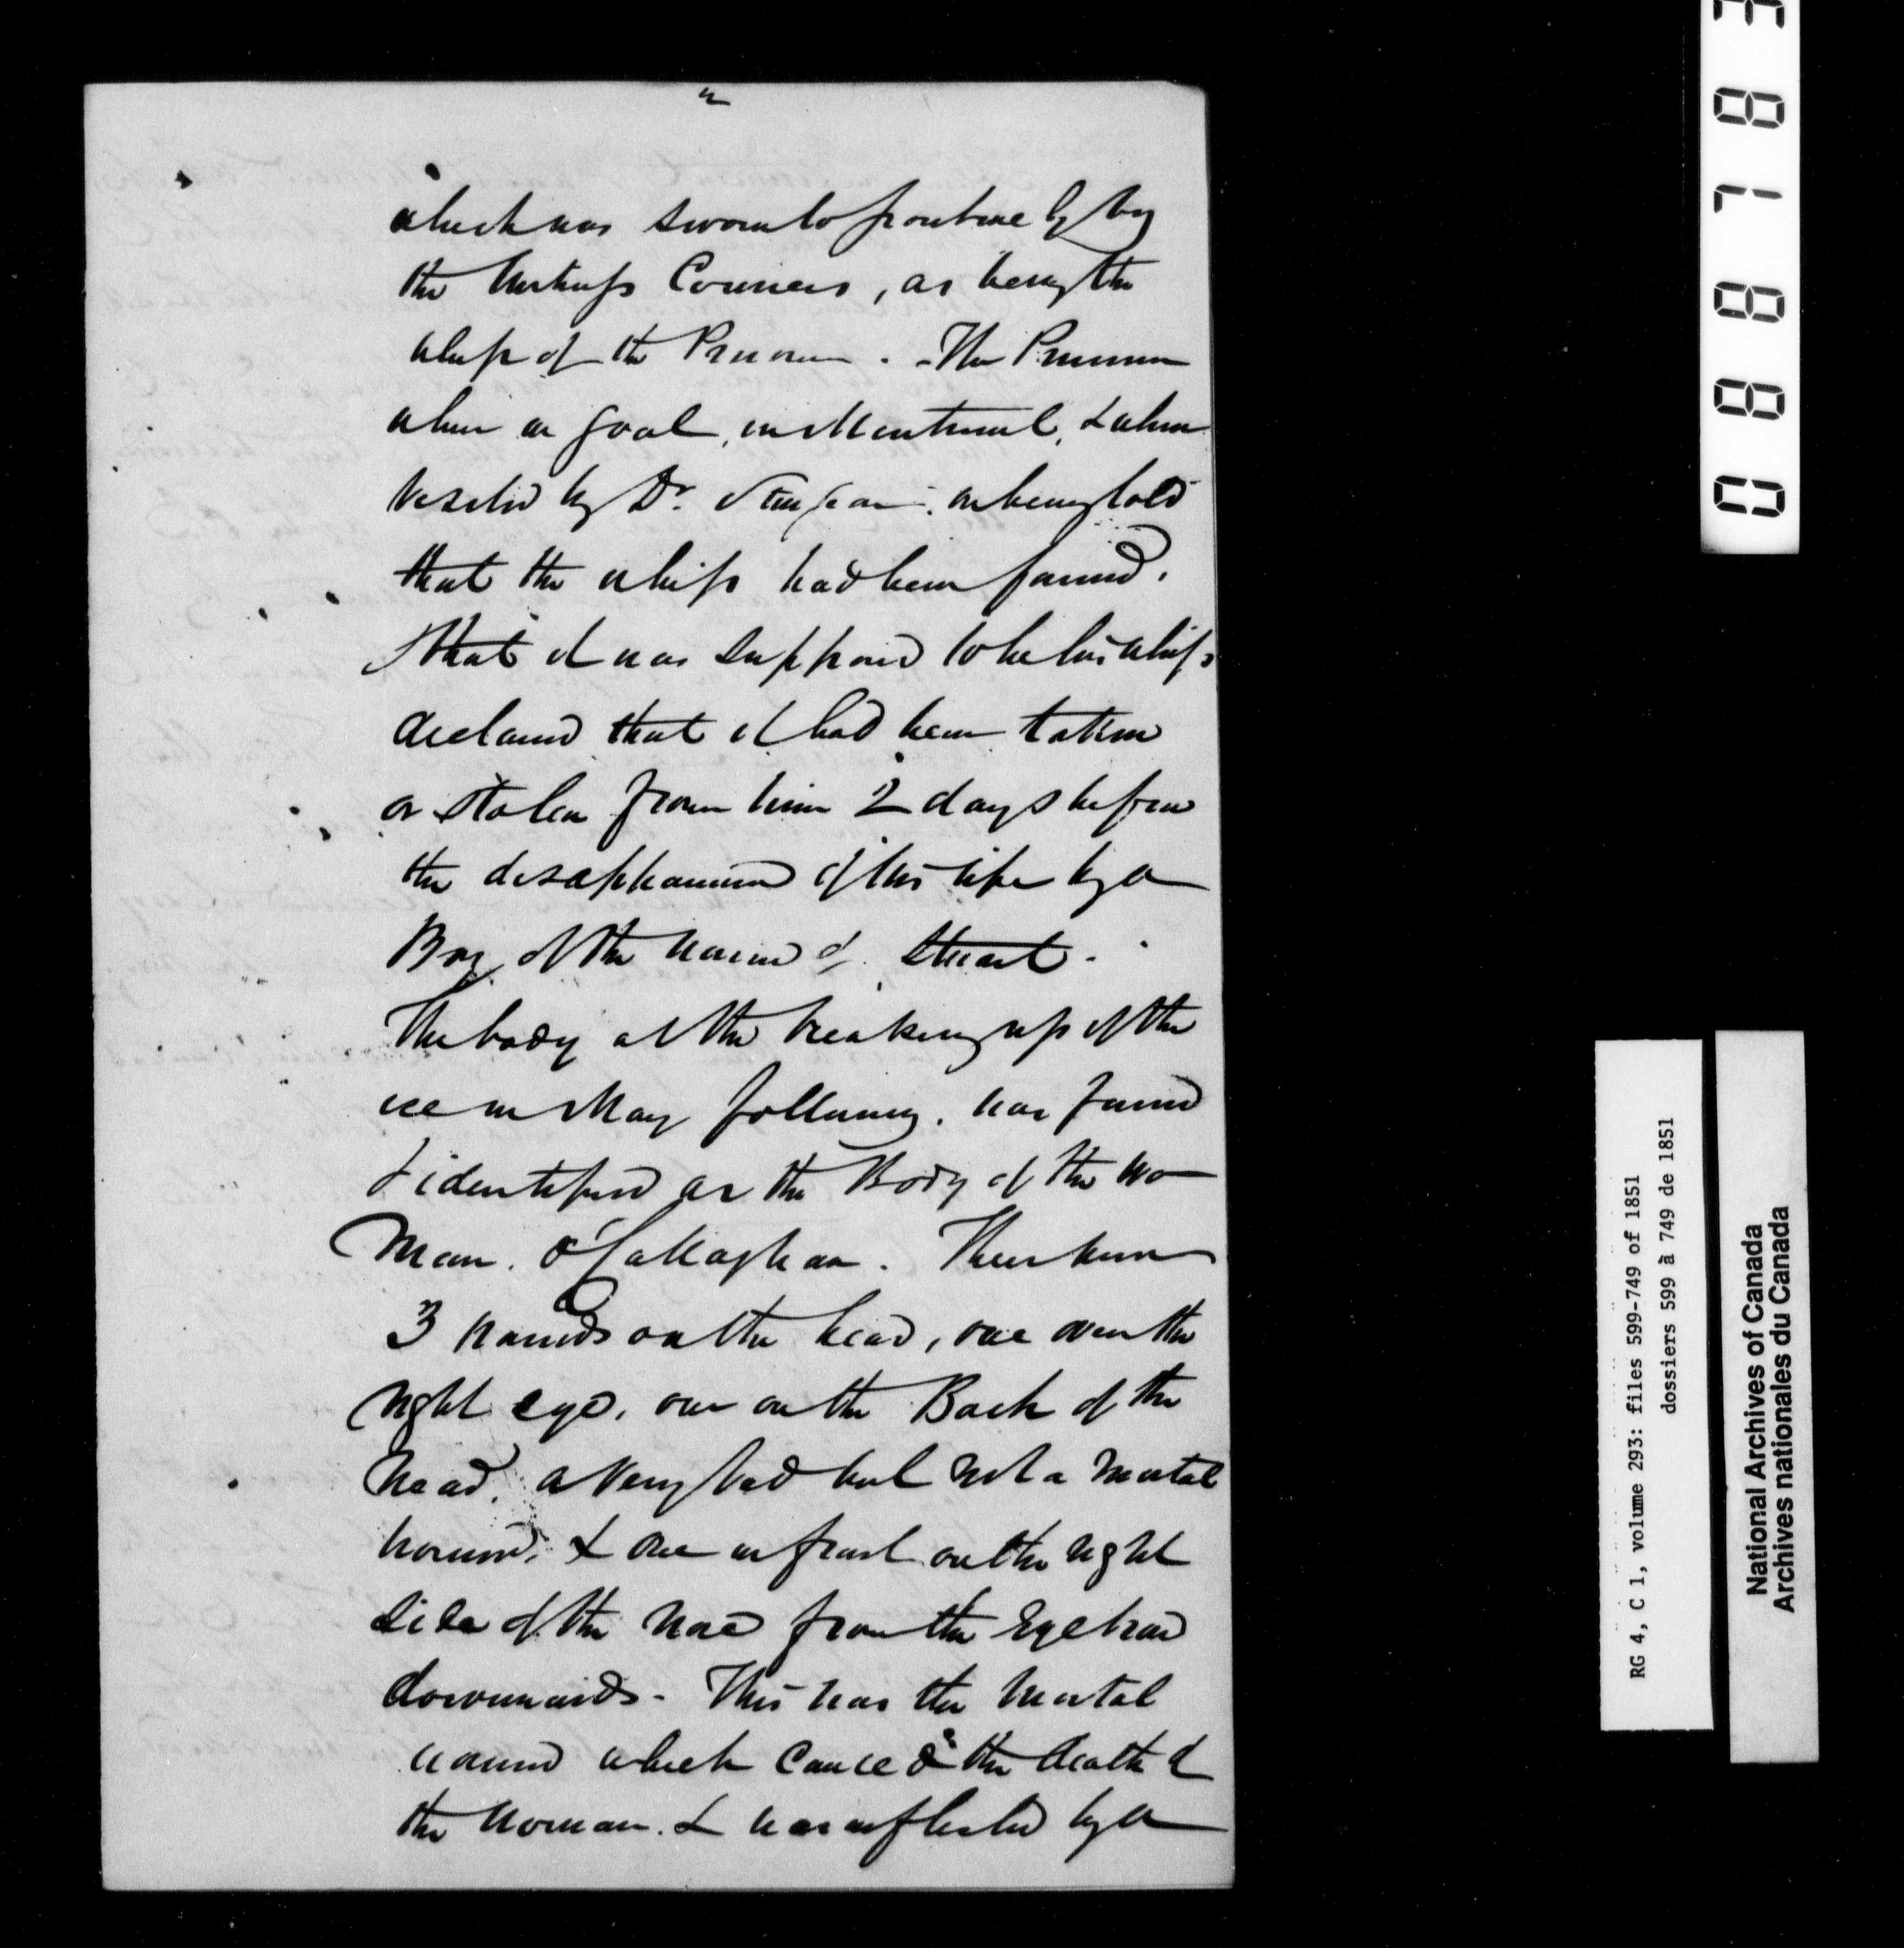 which was sworn to positively by
the Witness Conners, as being the
whip of the Prisoner. The Prisoner
when in goal, in Montreal, & when
visited by Dr. on being told
that the whip had been found,
& that it was supposed to be his whip,
declared that it had been taken
or stolen from him 2 days before
the disappearance of his wife by a
Boy of the name of Stuart.
The body at the breaking up of the
ice in May following, was found
& identified as the Body of the Wo-
man O'Callaghan. There were
3 wounds on the head, one over the
right eye, one on the Back of the
head, a very bad but not a mortal
wound, & one in front on the right
side of the nose from the Eyebrow
downwards. This was the mortal
wound which caused the death of
the Woman & was inflicted by a
088783
RG 4, C 1, volume 293: files 599-749 of 1851
dossiers 599 à 749 de 1851
National Archives of Canada
Archives nationales du Canada